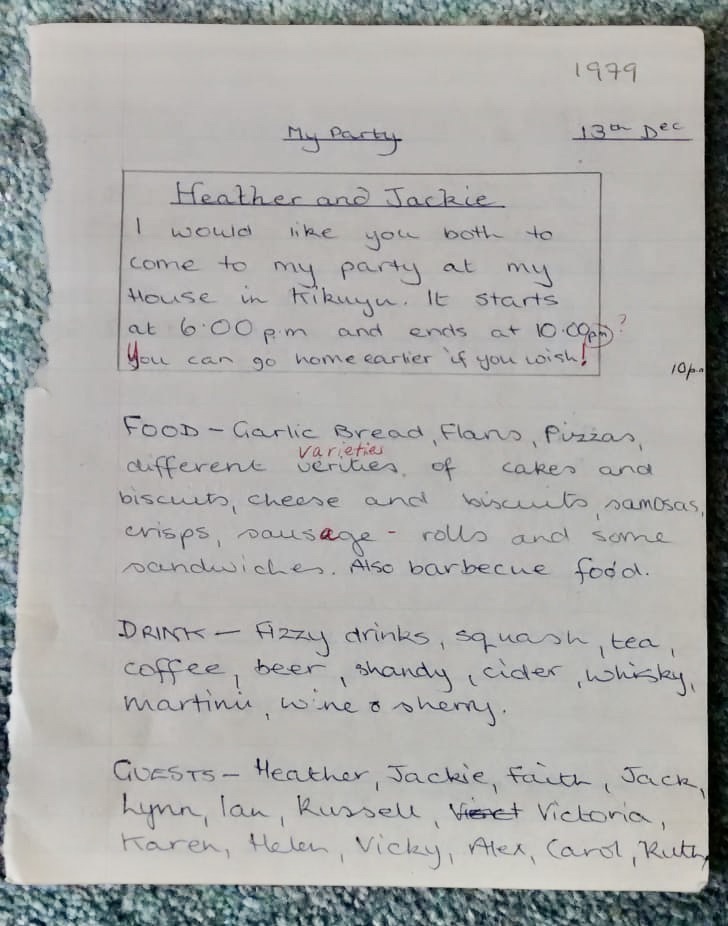 1979
My Party 13th Dec
Heather and Jackie
I would like you both to
come to my party at my
House in Kikuyu. It starts
at 6.00 p.m and ends at 10.00pm ?
You can go home earlier if you wish!
10pm
FOOD - Garlic Bread, Flans, Pizzas,
varieties
different verities, of cakes and
biscuits, cheese and biscuits, samosas,
crisps, sausage - rolls and some
sandwiches. Also barbecue food.
DRINK - Fizzy drinks, squash, tea,
coffee, beer, shandy, cider, whisky,
martinii, wine & sherry.
GUESTS - Heather, Jackie, Faith, Jack,
Lynn, Ian, Russell, Victoria,
Karen, Helen, Vicky, Alex, Carol, Ruth,